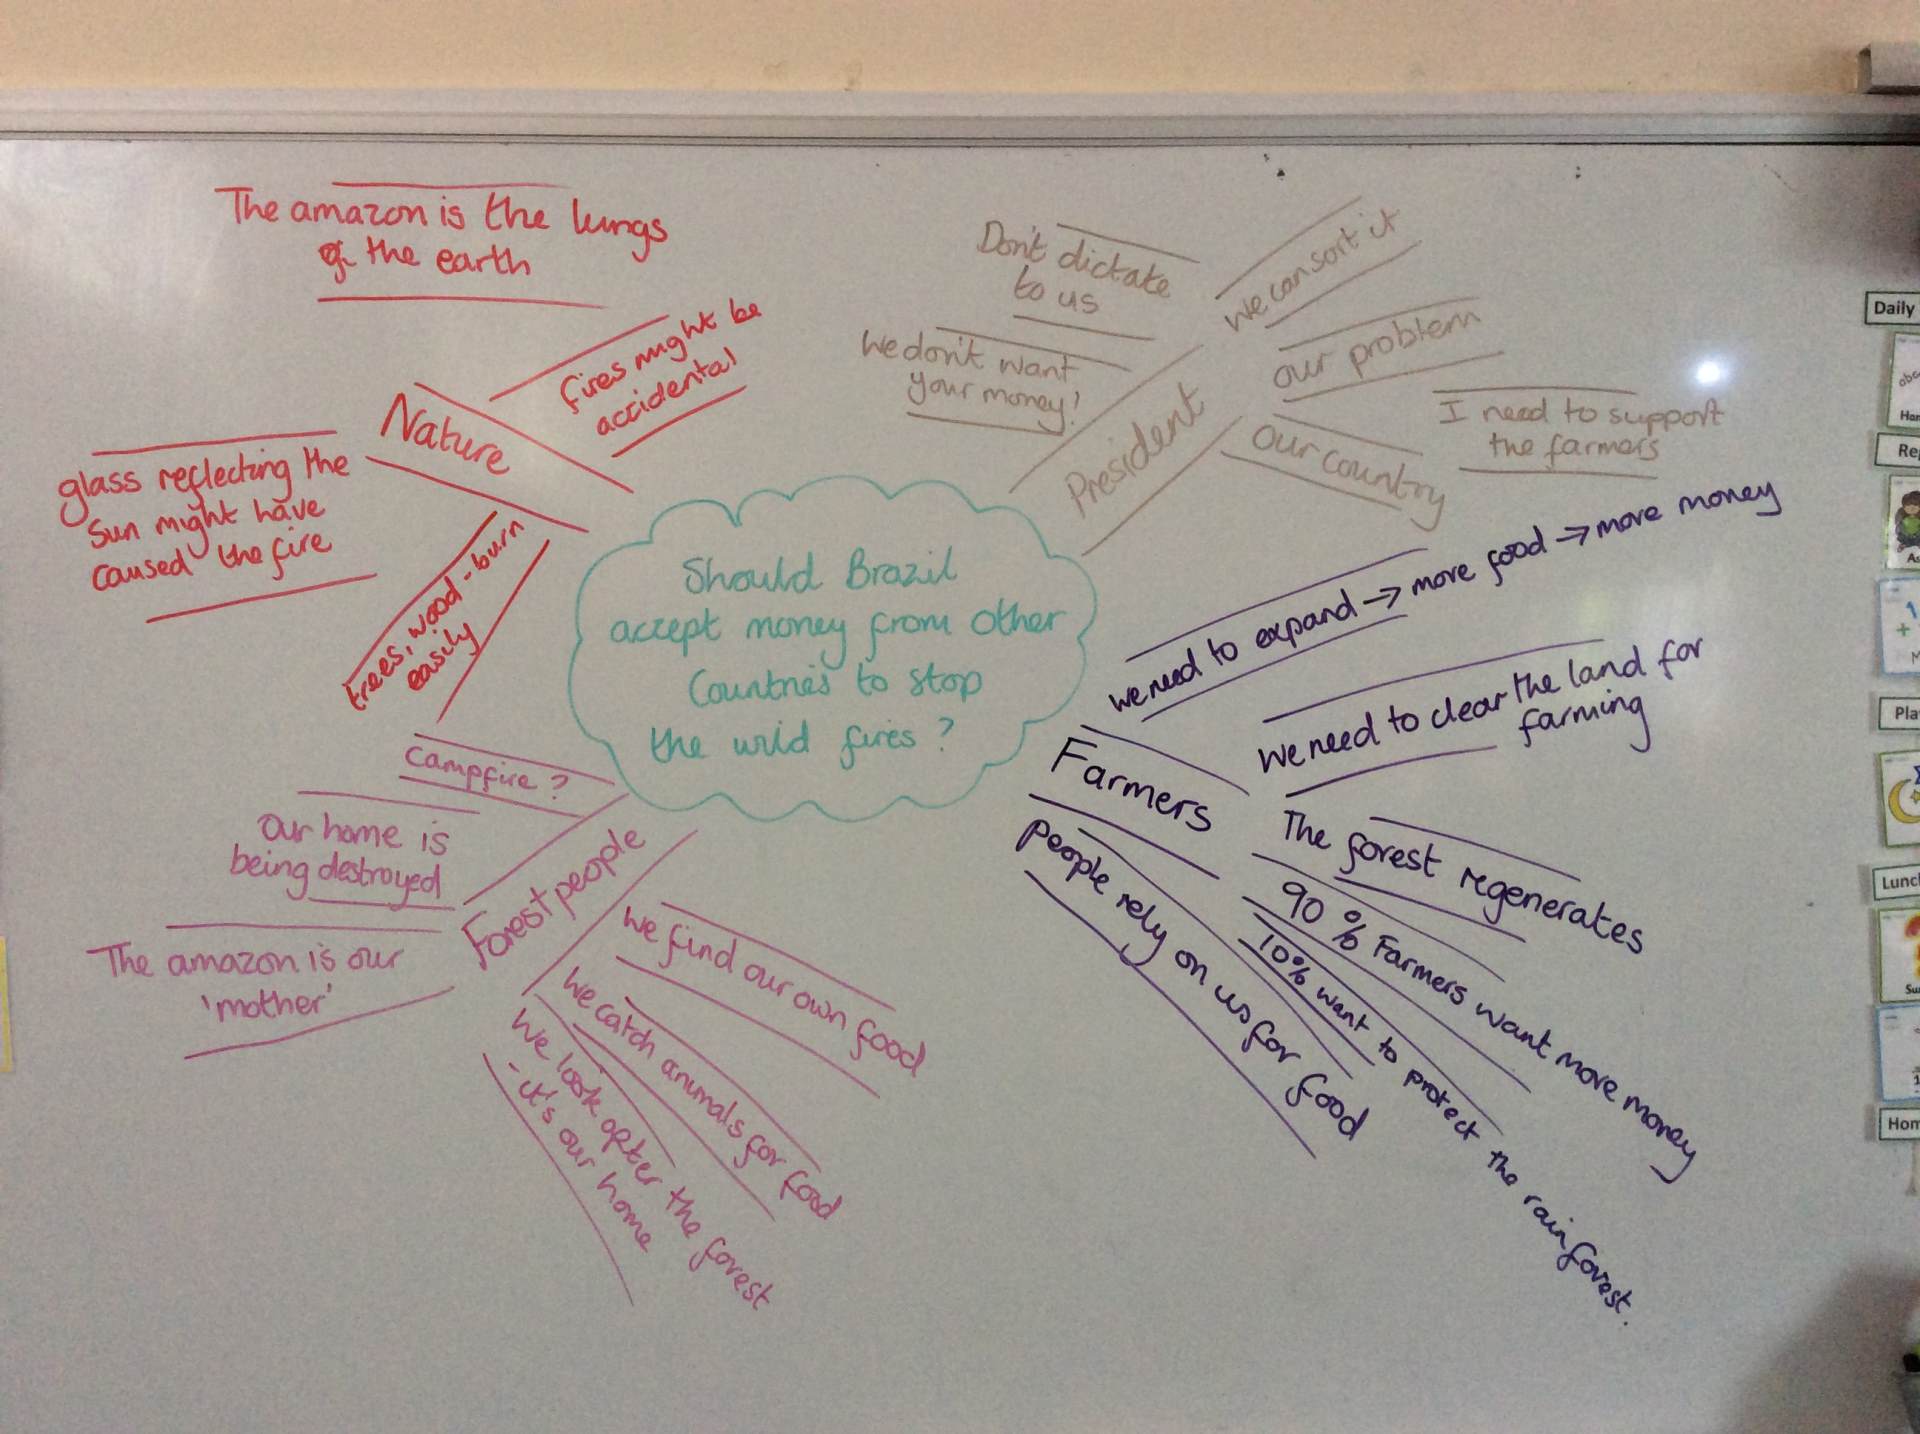 The amazon is the lungs
of the earth
fires might be
accidental
Nature
glass reflecting the
Sun might have
caused the fire
trees, wood - burn
easily
Don't dictate
to us
We can sort it
We don't want
your money!
our problem
President
I need to support
the farmers
Our country
Should Brazil
accept money from other
Countries to stop
the wild fires?
we need to expand → more food → more money
We need to clear the land for
farming
Farmers
The forest regenerates
90% Farmers want more money
10% want to protect the rainforest.
people rely on us for food
Campfire?
Our home is
being destroyed
Forest people
The amazon is our
'mother'
We find our own food
We catch animals for food
We look after the forest
- it's our home
Daily
Lunc
Hom